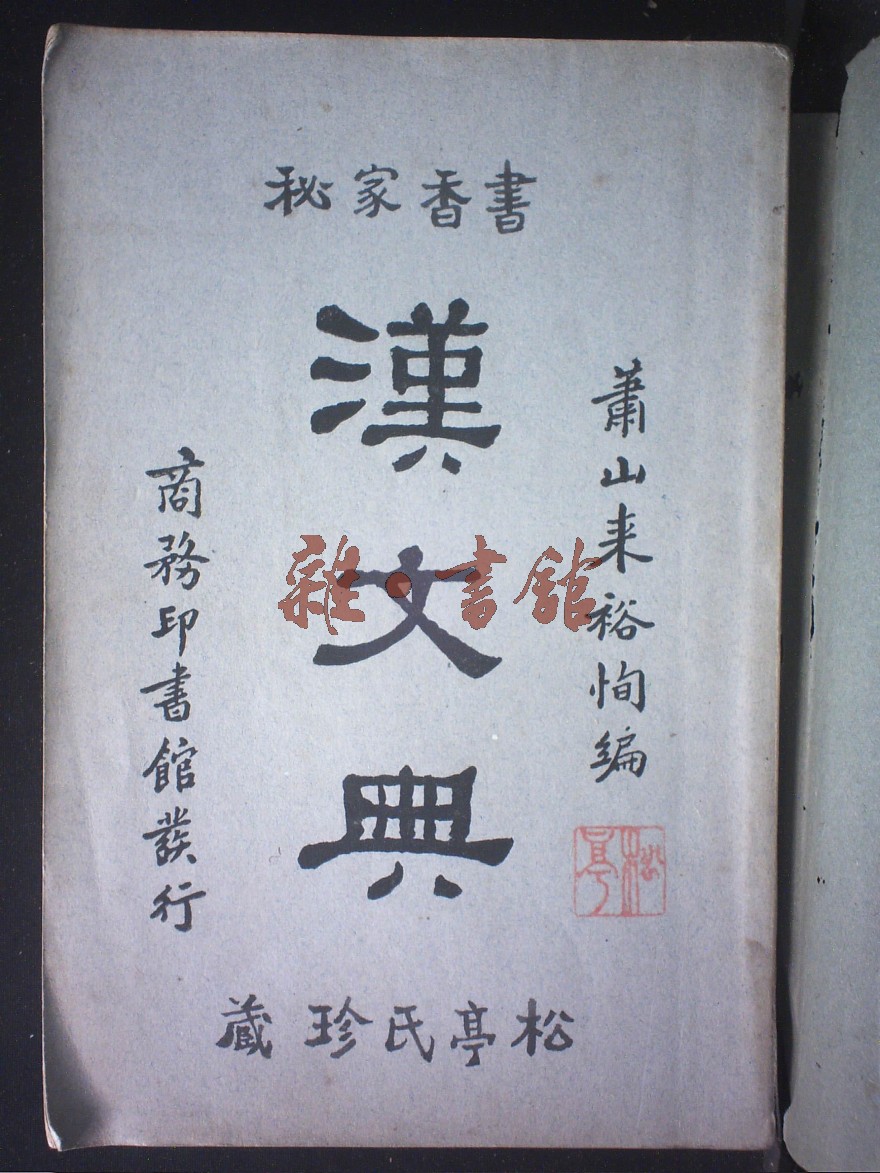 書香家秘
漢文典
蕭山来裕恂編
商務印書館發行
松亭
松亭氏珍藏
雜·書館